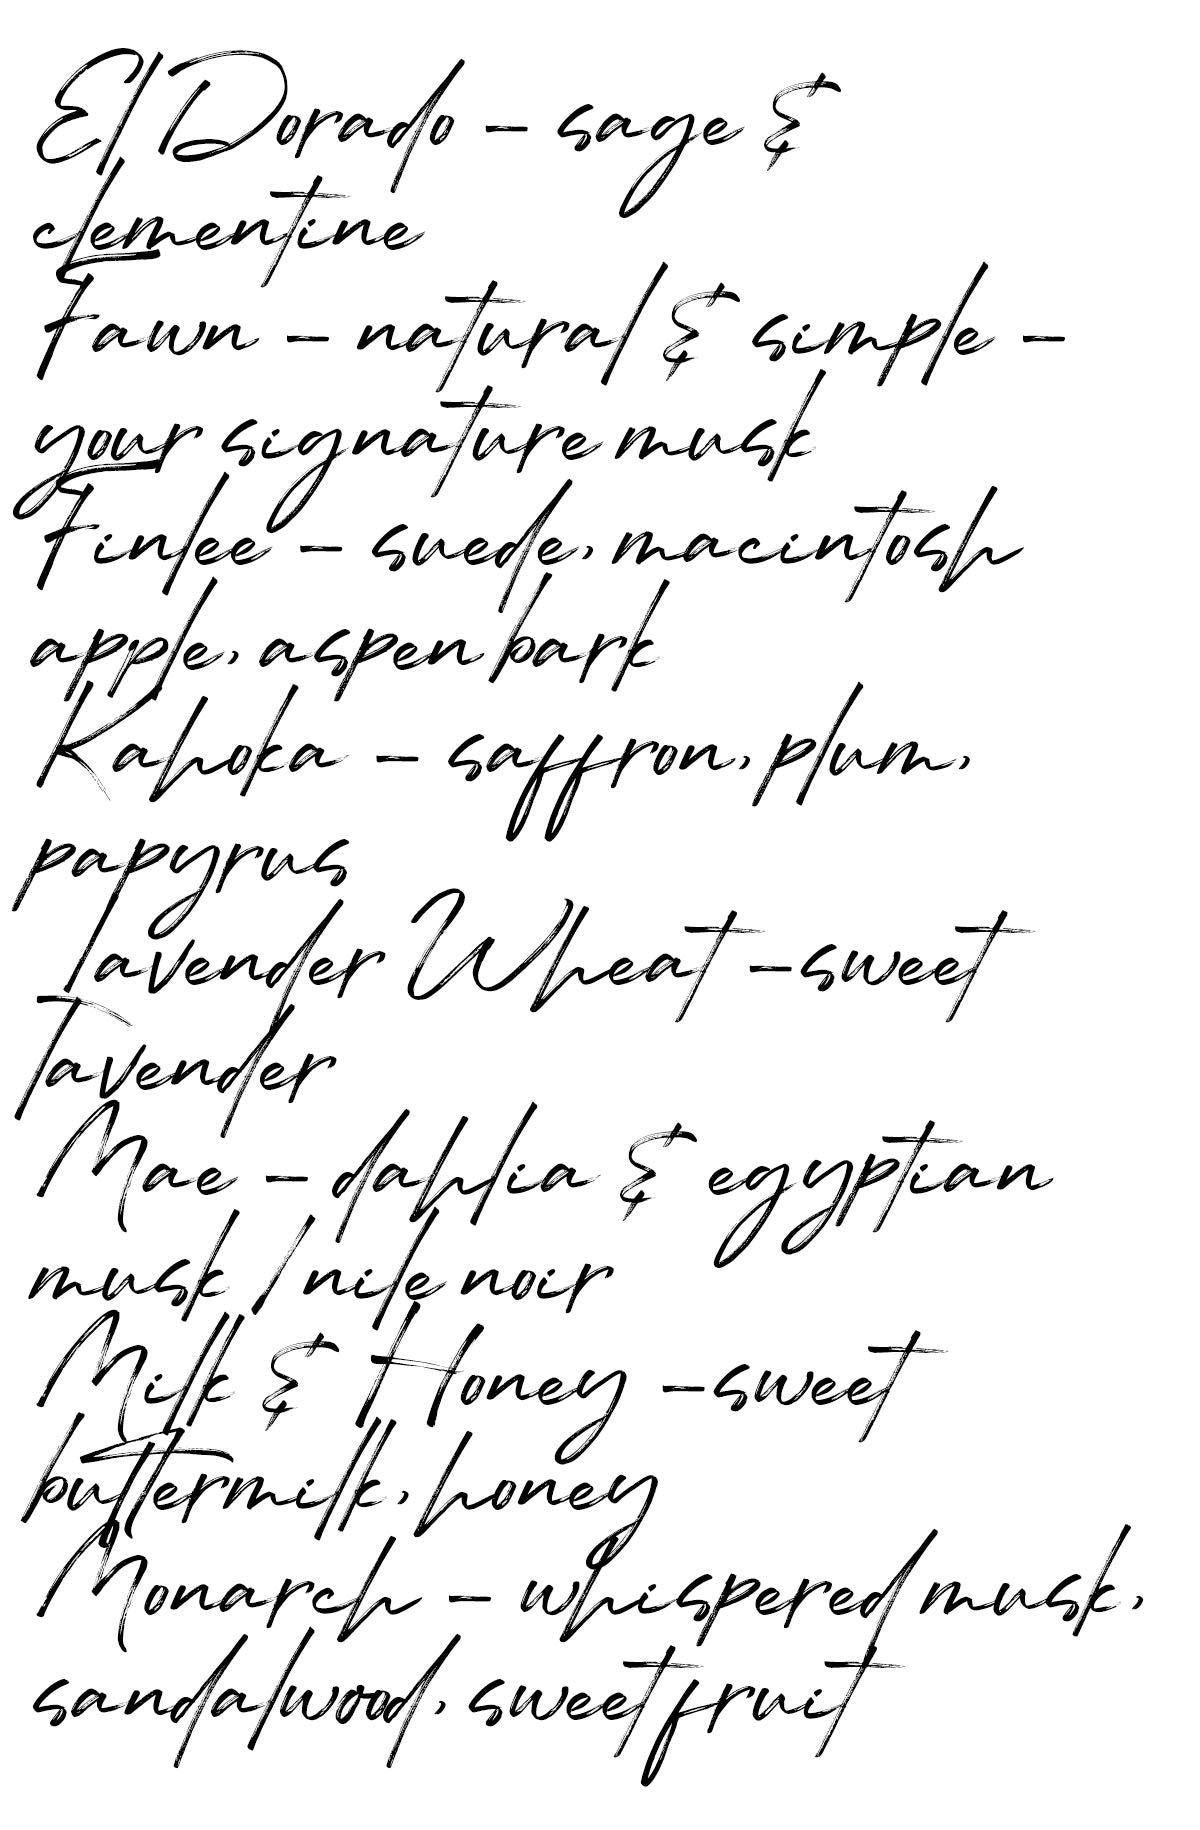 El Dorado - sage &
clementine
Fawn - natural & simple -
your signature musk
Finlee - suede, macintosh
apple, aspen bark
Kahoka - saffron, plum,
papyrus
Lavender Wheat -sweet
lavender
Mae - dahlia & egyptian
musk / nile noir
Milk & Honey -sweet
buttermilk, honey
Monarch - whispered musk,
sandalwood, sweet fruit